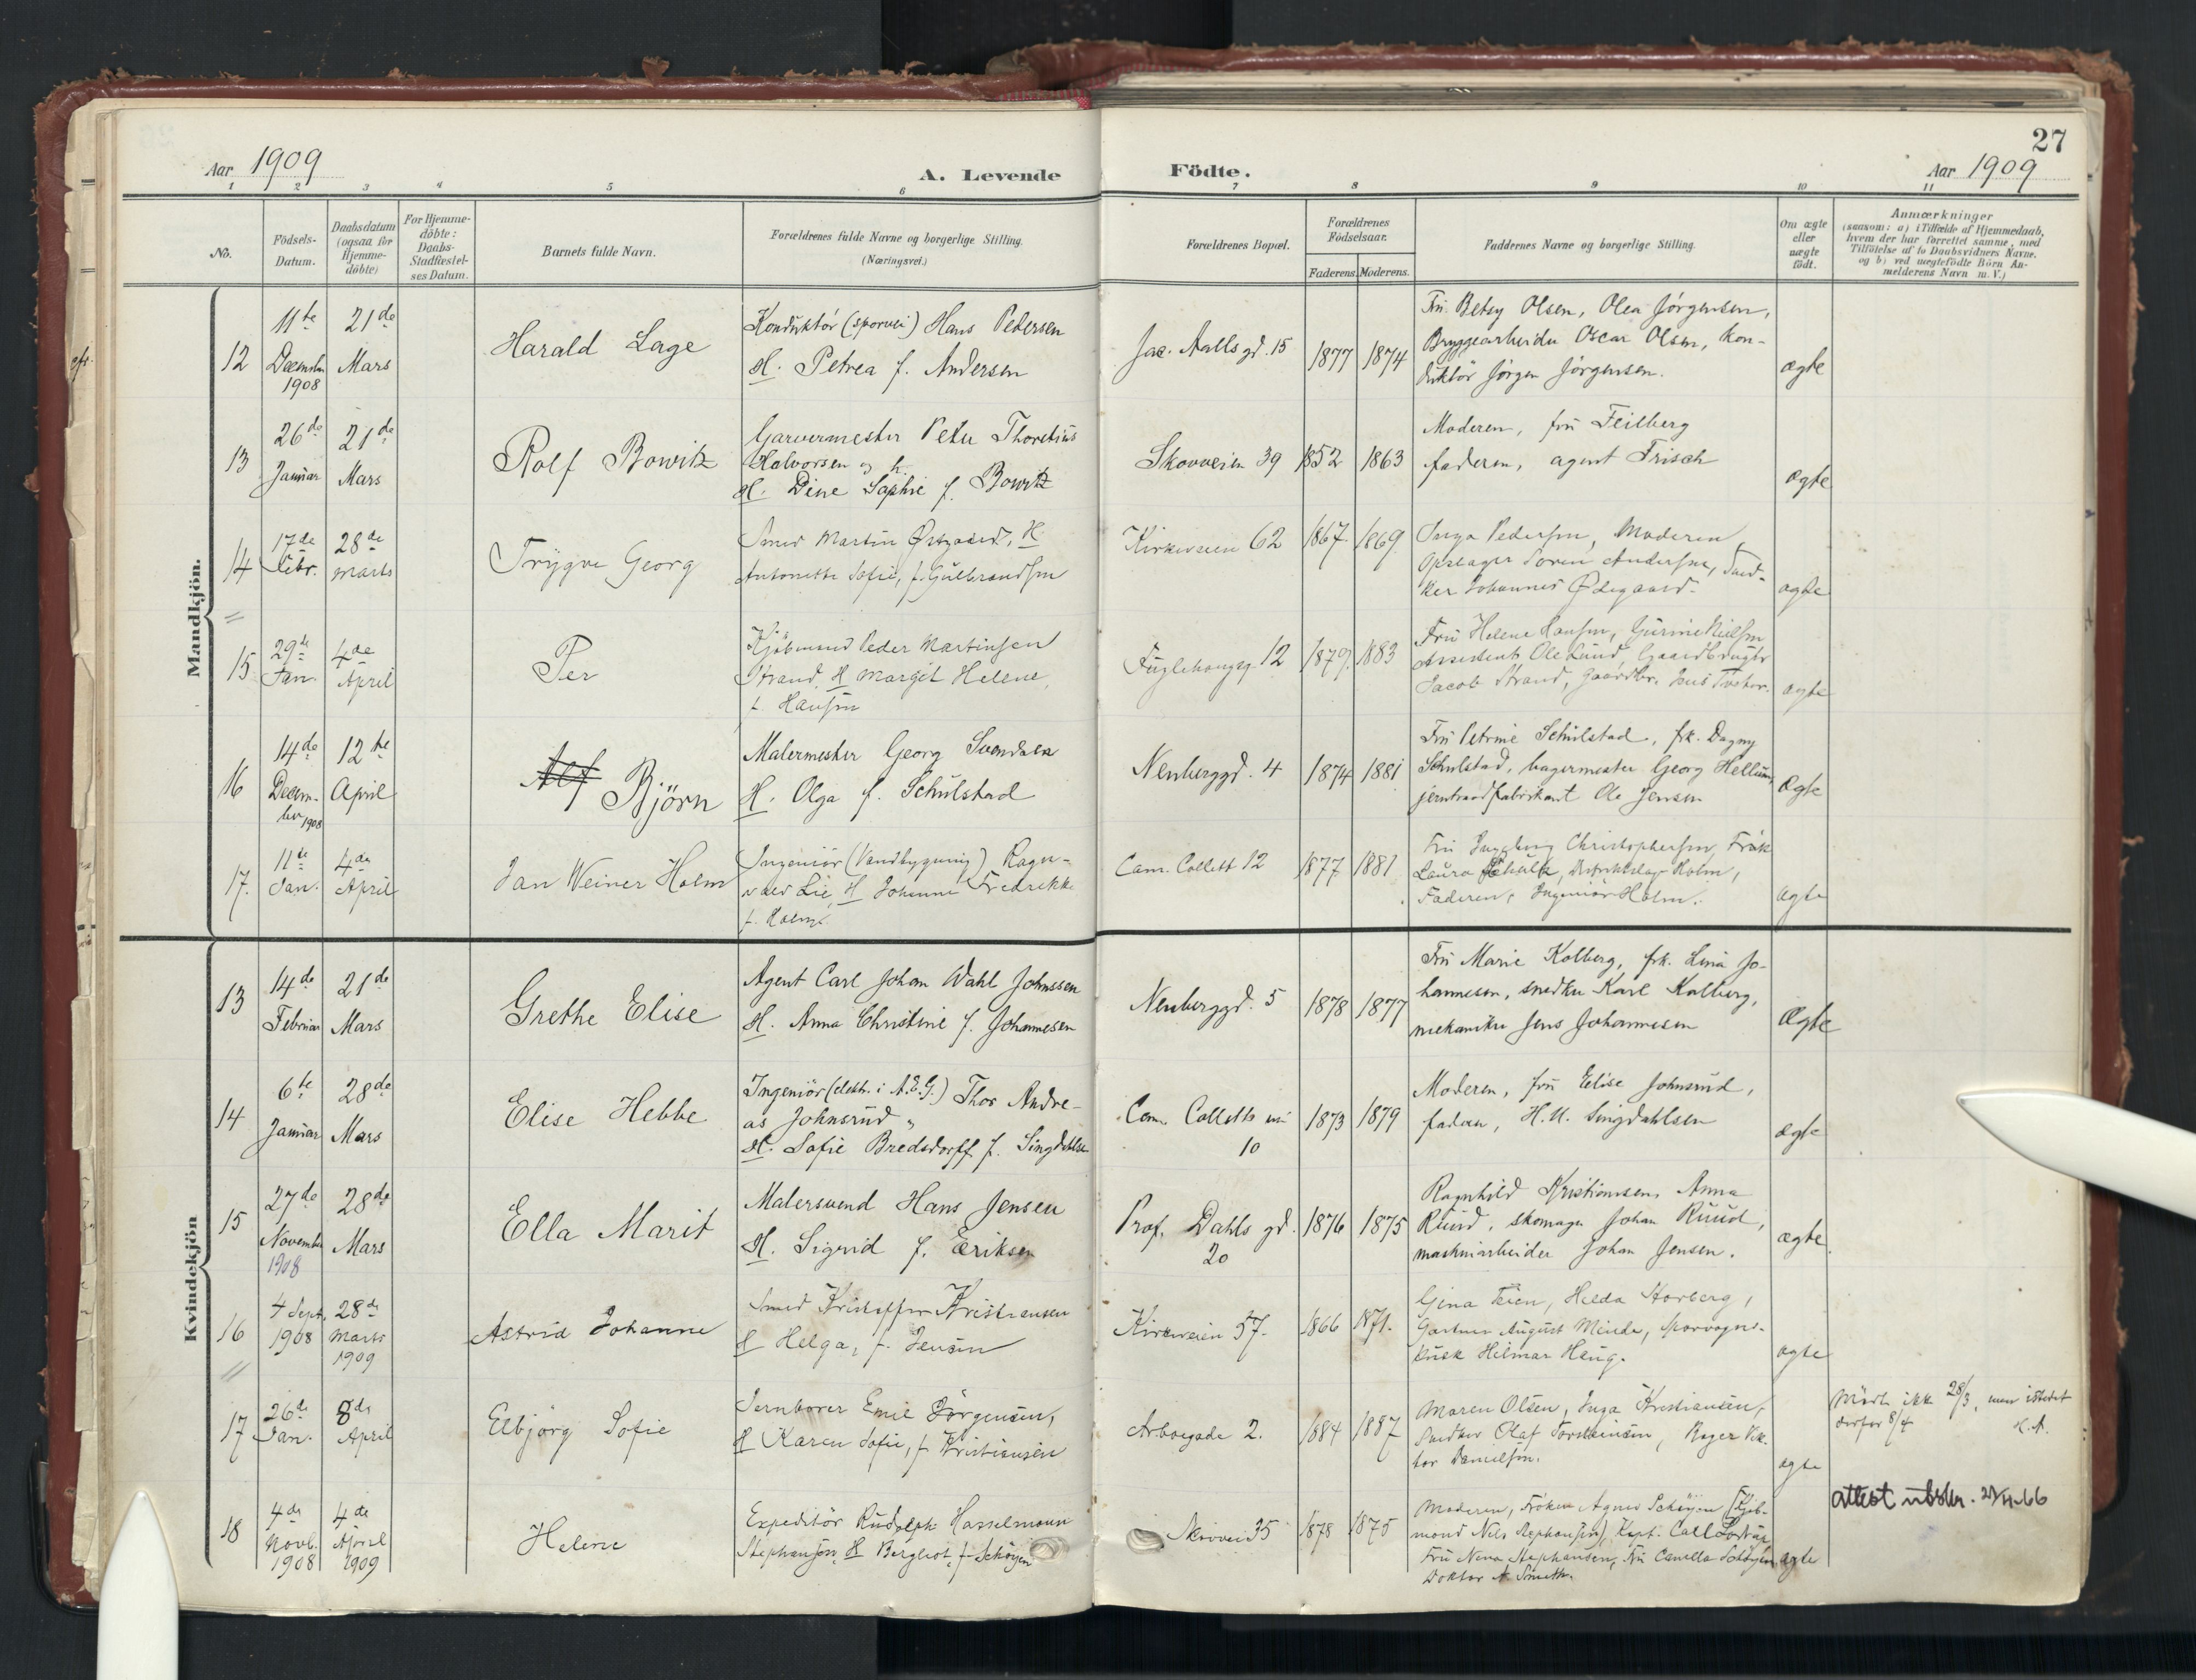 27
Aar 1909
A. Levende
Födte.
Aar 1909
1 2 3 4 5 6 7 8 9 10 11
No.
Födsels-
Datum.
Daabsdatum
(ogsaa for
Hjemme-
döbte)
For Hjemme-
döbte:
Daabs-
Stadfæstel-
ses Datum.
Barnets fulde Navn.
Forældrenes fulde Navne og borgerlige Stilling.
(Næringsvei.)
Forældrenes Bopæl.
Forældrenes
Födselsaar.
Faderens. Moderens.
Faddernes Navne og borgerlige Stilling.
Om ægte
eller
uægte
födt.
Anmærkninger
(saasom: a) i Tilfælde af Hjemmedaab,
hvem der har forrettet samme, med
Tilföielse af to Daabsvidners Navne.
og b) ved uægtefödte Börn An-
melderens Navn m. V.)
Mandkjön.
12
11te
December
1908
21de
Mars
Harald Lage
Konduktör (sporvei) Hans Pedersen
H. Petrea f. Andersen
Jac. Aalls gd. 15
1877
1874
Fru Betsy Olsen, Olea Jörgensen,
Bryggearbeider Oscar Olsen, kon-
duktör Jörgen Jörgensen.
ægte
13
26de
Januar
21de
Mars
Rolf Bowitz
Garvermester Peter Thoretius
Halvorsen og h.
H. Dine Sophie f. Bowitz
Skovveien 39
1852
1863
Moderen, fru Feilberg
faderen, agent Frisch
ægte
14
17de
Febr.
28de
Marts
Trygve Georg
Smed Martin Østgaard, H
Antonette Sofie, f. Gulbrandsen
Kirkeveien 62
1867.
1869.
Inga Pedersen, Moderen
Opsager Soren Andersen, Snad-
ker Johannes Ødegaard.
ægte
15
29de
Jan.
4de
April
Per
Kjöbmand Peder Martinsen
Strand, H Margit Helene,
f. Hansen
Fuglehaugsg. 12
1879.
1883
Fru Helene Hansen, Gurine Nielsen
Assistent Ole Lund, Gaardbruger
Jacob Strand, Gaardbr. Jens
ægte
16
14de
Decem-
ber 1908
12te
April
Alf Björn
Malermester Georg Svendsen
H. Olga f. Schulstad
Neuberggd. 4
1874
1881
Fru Petrine Schulstad, frk. Dagny
Schulstad, bagermester Georg Hellum,
jerntraadfabrikant Ole Jensen
Ægte
17.
11te
Jan.
4de
April
Jan Weiner Holm
Ingeniör (Vandbygning) Ragn-
vald Lie, H Johanne Fredrikke
f. Holm.
Cam. Collett 12
1877
1881
Fru Ingeborg Christophersen, Frök
Laura Schulk, Holm,
Faderen, Ingeniör Holm.
ægte
Kvindekjön
13
14de
Februar
21de
Mars
Grethe Elise
Agent Carl Johan Wahl Johnssen
H. Anna Christine f. Johannesen
Neuberggd. 5
1878
1877
Fru Marie Kolberg, frk. Lina Jo-
hannesen, snedker Karl Kolberg,
mekaniker Jens Johannesen
Ægte
14
6te
Januar
28de
Mars
Elise Hebbe
Ingeniör (elektr. i A.E.G.) Thor Andre-
as Johnsrud
H. Sofie Bredsdorff f. Singdahlsen
Cam. Colletts vei
10
1873
1879
Moderen, fru Elise Johnsrud,
faderen, H. U. Singdahlsen
ægte
15
27de
November
1908
28de
Mars
Ella Marit
Malersvend Hans Jensen
H. Sigrid f. Eriksen
Prof. Dahls gd.
20
1876
1875
Ragnhild Kristiansen, Anna
Ruud, skomager Johan Ruud,
maskinarbeider Johan Jensen.
ægte.
16
4 Sept.
1908
28de
Marts
1909
Astrid Johanne
Smed Kristoffer Kristiansen
H Helga, f. Jensen
Kirkeveien 57.
1866
1871.
Gina Teien, Hilda Storberg,
Gartner August Minde, Sporvogns-
kusk Hilmar Haug.
ægte
17
26de
Jan.
8de
April
Elbjörg Sofie
Jernborer Emil Jörgensen,
H Karen Sofie, f. Kristiansen
Arbogade 2.
1884
1887
Maren Olsen, Inga Kristiansen,
Snedker Olaf Torsteinsen, Bager Vik-
tor Danielsen.
ægte
Mödte ikke 28/3, men istedet
derfor 8/4
H. A.
18
4de
Novb.
1908
4de
April
1909
Helene
Expeditör Rudolph Hasselmann
Stephansen, H Bergliot, f. Schøyen
Skovvei 35
1878
1875
Moderen, Fröken Agnes Schøyen, Kjøb-
mand Nils Stephansen, Kapt. Carl
Fru Nena Stephansen, Fru Camilla Schøyen
Doktor A. Smith.
ægte
attest utstr.